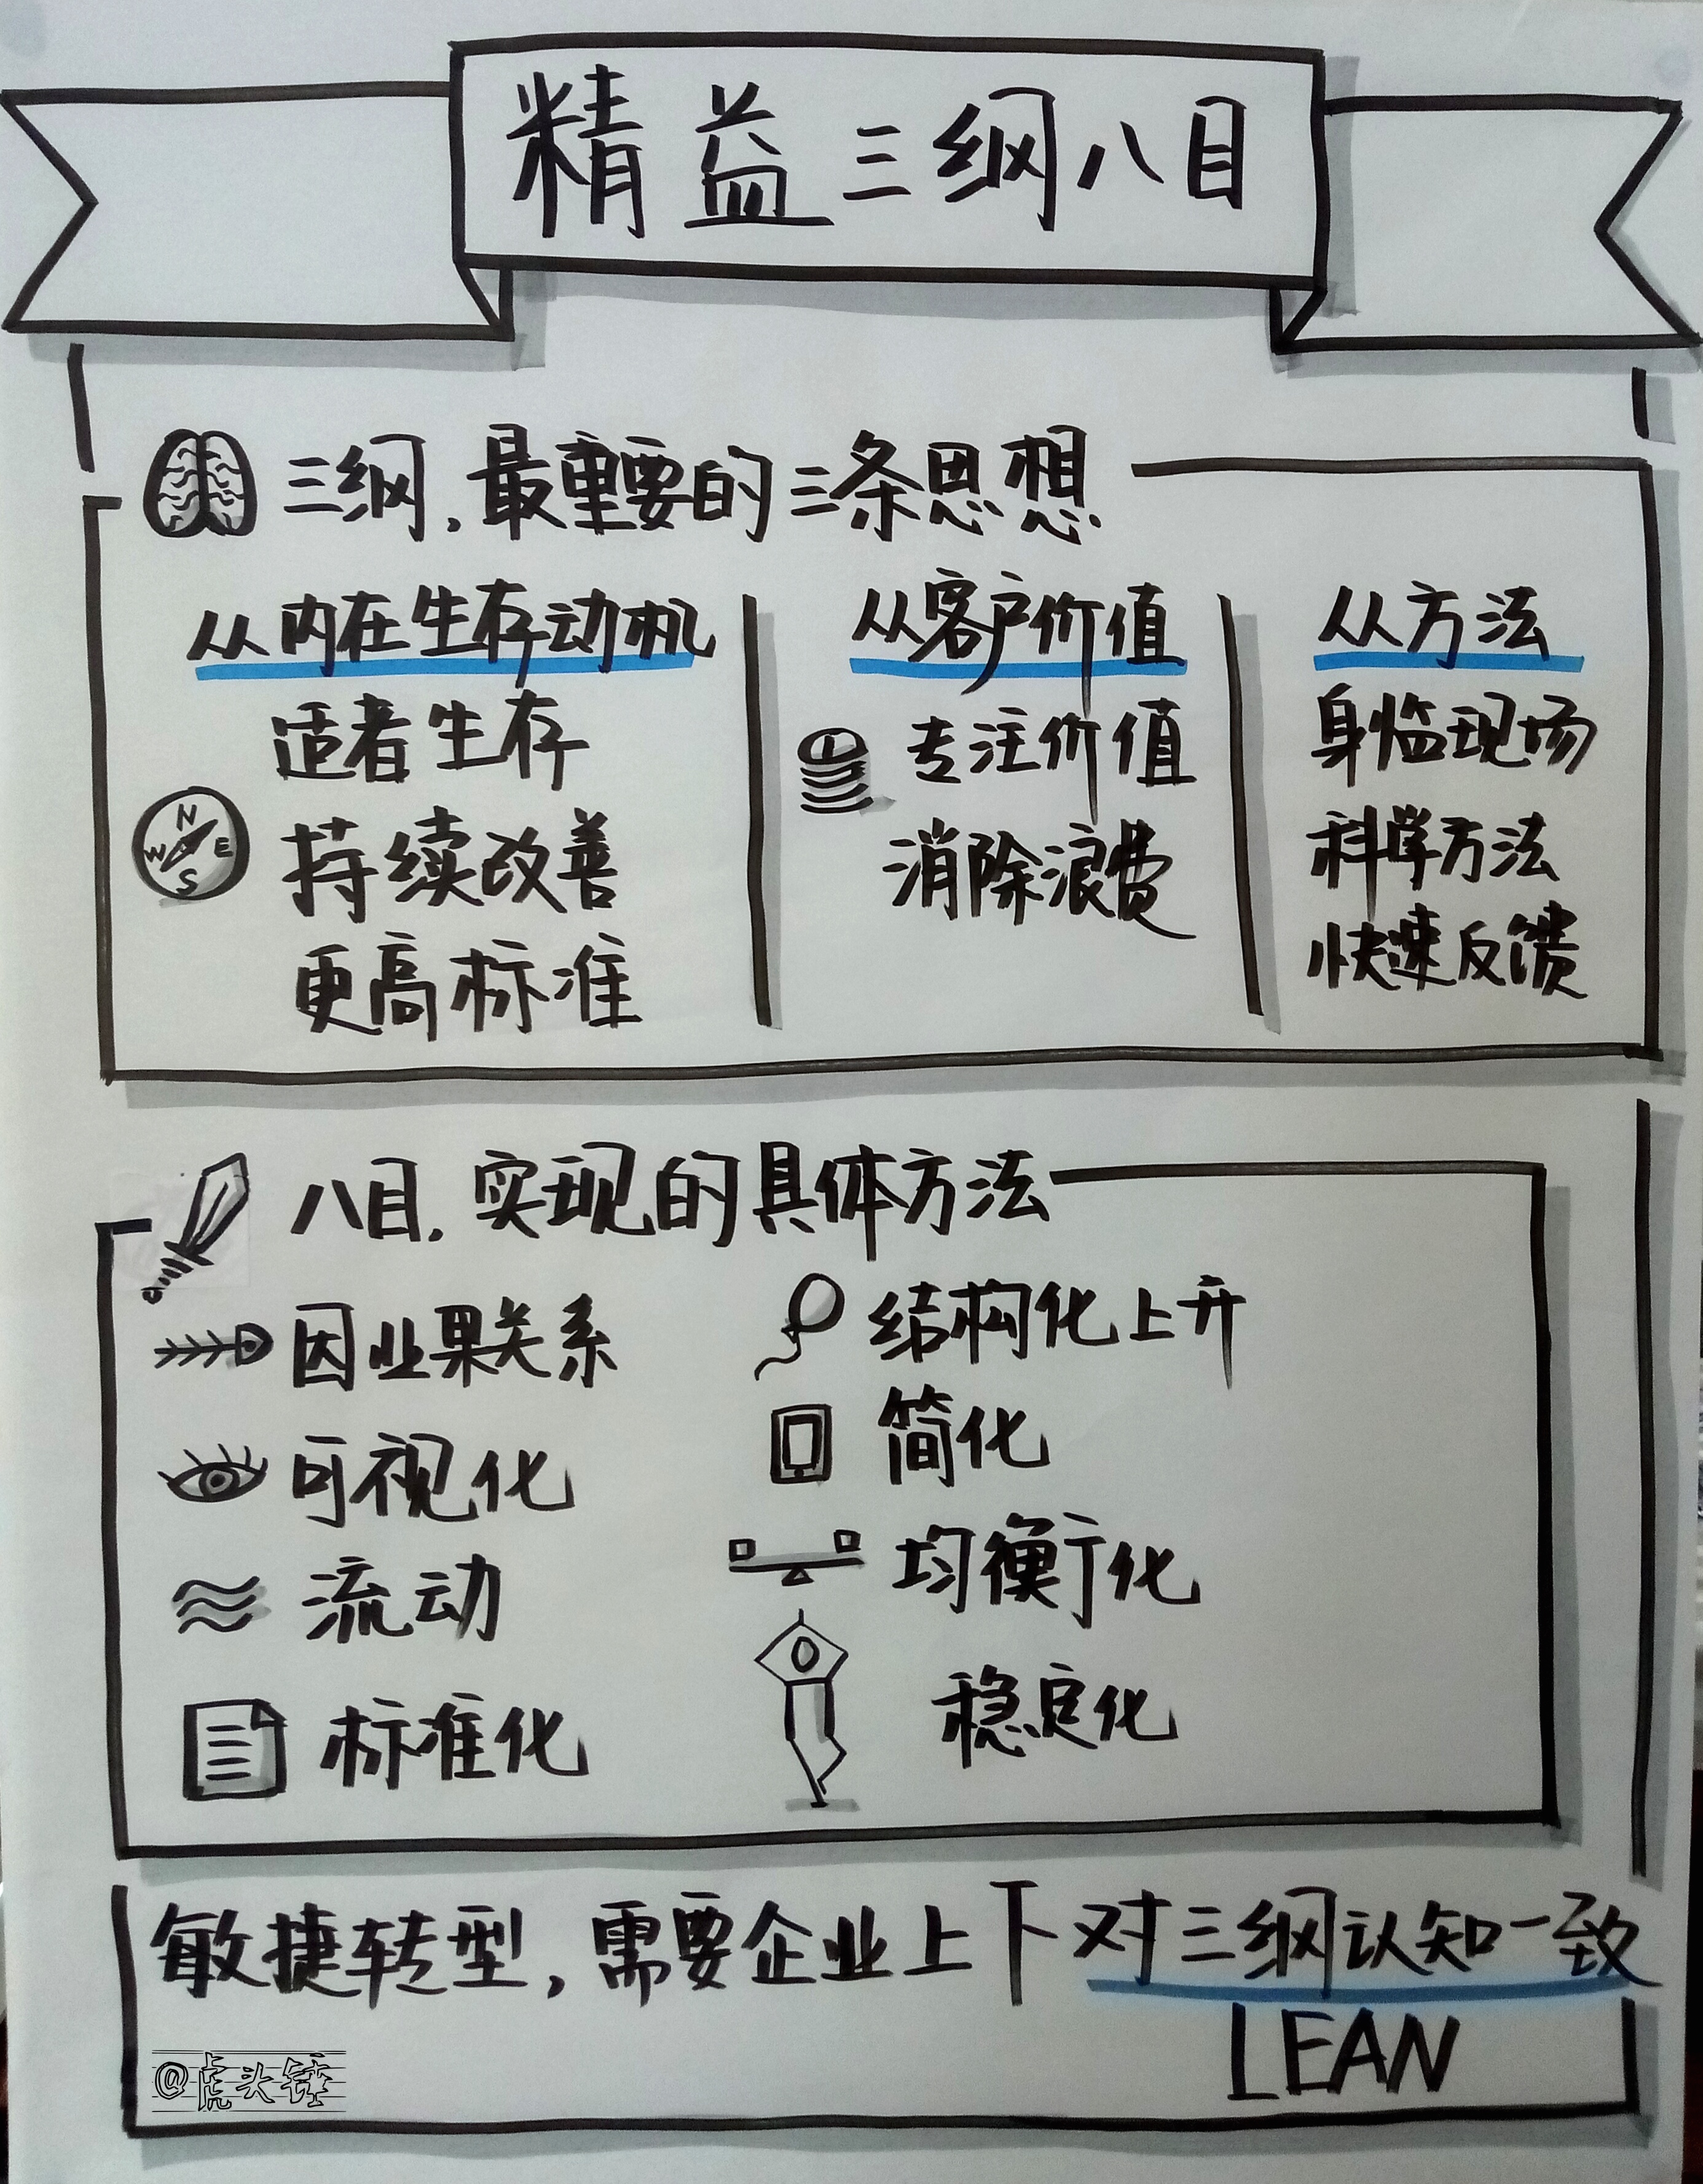 精益三纲八目
三纲，最重要的三条思想
从内在生存动机
适者生存
持续改善
更高标准
N
W E
S
从客户价值
专注价值
消除浪费
从方法
身临现场
科学方法
快速反馈
八目，实现的具体方法
因业果关系
可视化
流动
标准化
结构化上升
简化
均衡化
稳定化
敏捷转型，需要企业上下对三纲认知一致
LEAN
@虎头锤